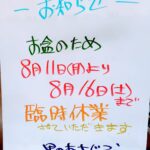 お知らせ
お盆のため
8月11日(月)より
8月16日(土)
まで
臨時休業
させていただきます